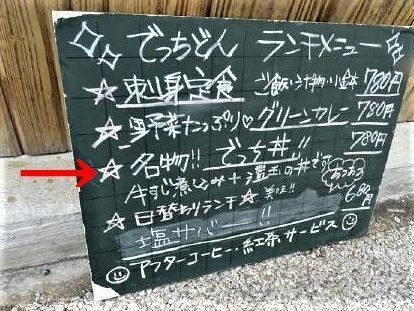 でっちどん ランチメニュー
☆刺身定食 ご飯・汁物・小鉢 780円
☆野菜たっぷり♡グリーンカレー 780円
☆名物!! でっち丼!! 780円
牛すじ煮込み+温玉の丼です
☆日替わりランチ☆美味!! 680円
塩サバー!!
アフターコーヒー・紅茶サービス